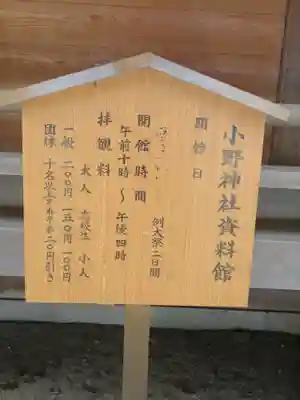 小野神社資料館
開館日
例大祭二日間
開館時間
午前十時〜午後四時
拝観料
大人 高校生 小人
一般 二〇〇円 一五〇円 一〇〇円
団体 十名以上 二〇円引き